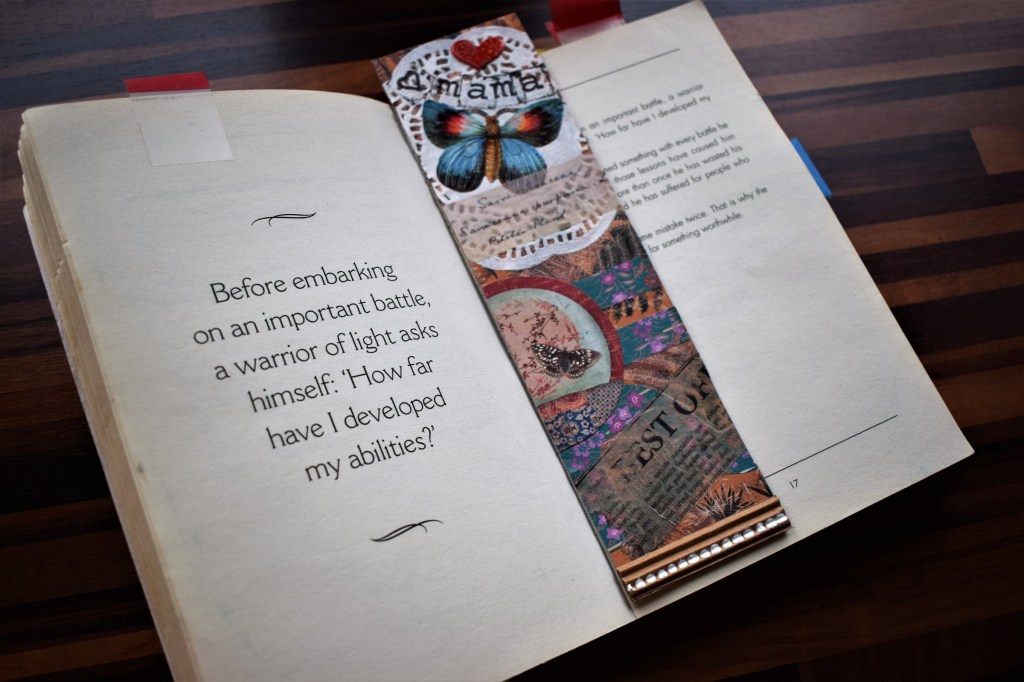 Before embarking
on an important battle,
a warrior of light asks
himself: ‘How far
have I developed
my abilities?’
mama
EST OF
an important battle, a warrior
‘How far have I developed my
something with every battle he
those lessons have caused him
more than once he has wasted his
he has suffered for people who
mistake twice. That is why the
for something worthwhile.
17